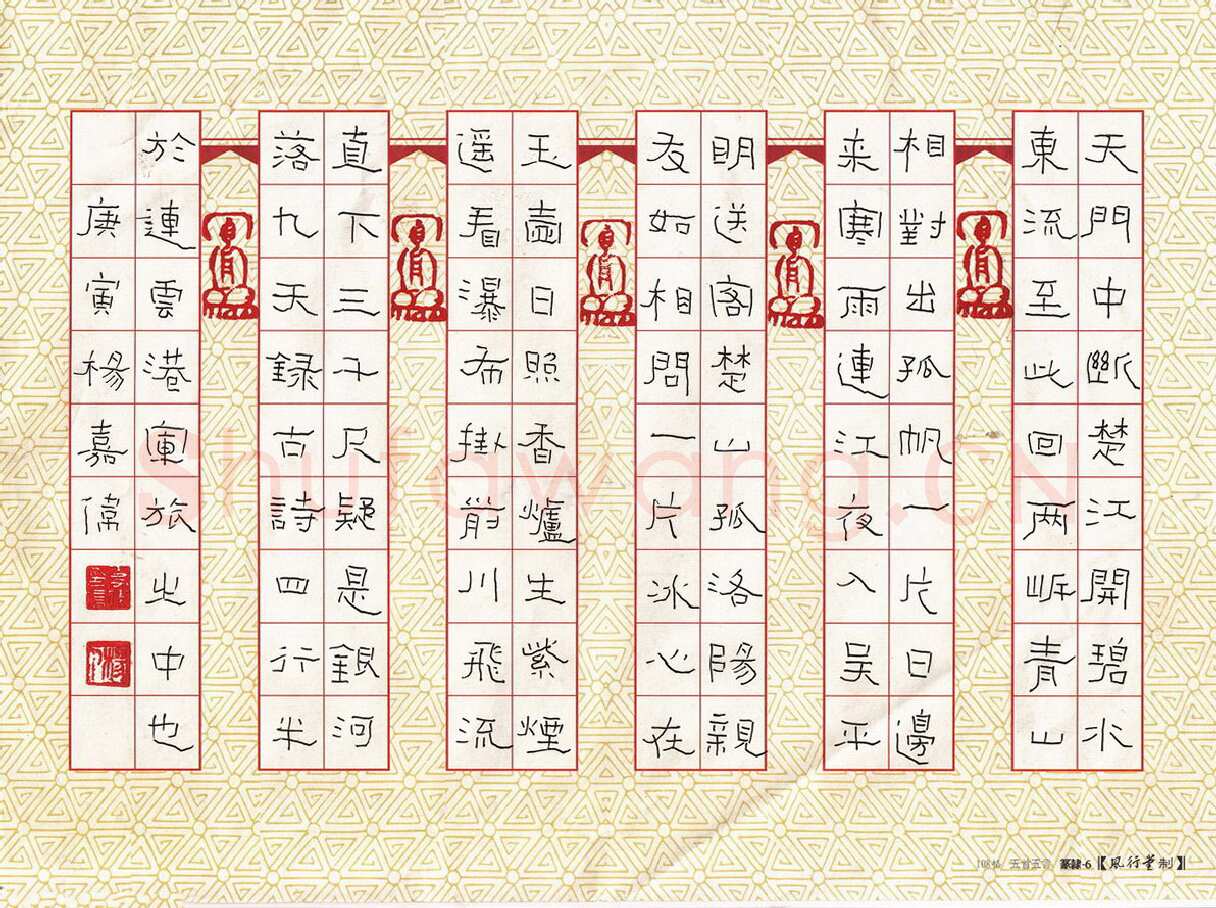 天門中斷楚江開碧水
東流至此回两岸青山
相對出孤帆一片日邊
来寒雨連江夜入吴平
明送客楚山孤洛陽親
友如相問一片冰心在
玉壺日照香爐生紫煙
遥看瀑布掛前川飛流
直下三千尺疑是銀河
落九天録古詩四行
於連雲港軍旅之中也
庚寅楊嘉偉
Shufawang.CN
108格 五首五言 篆隸-6【風行 制】